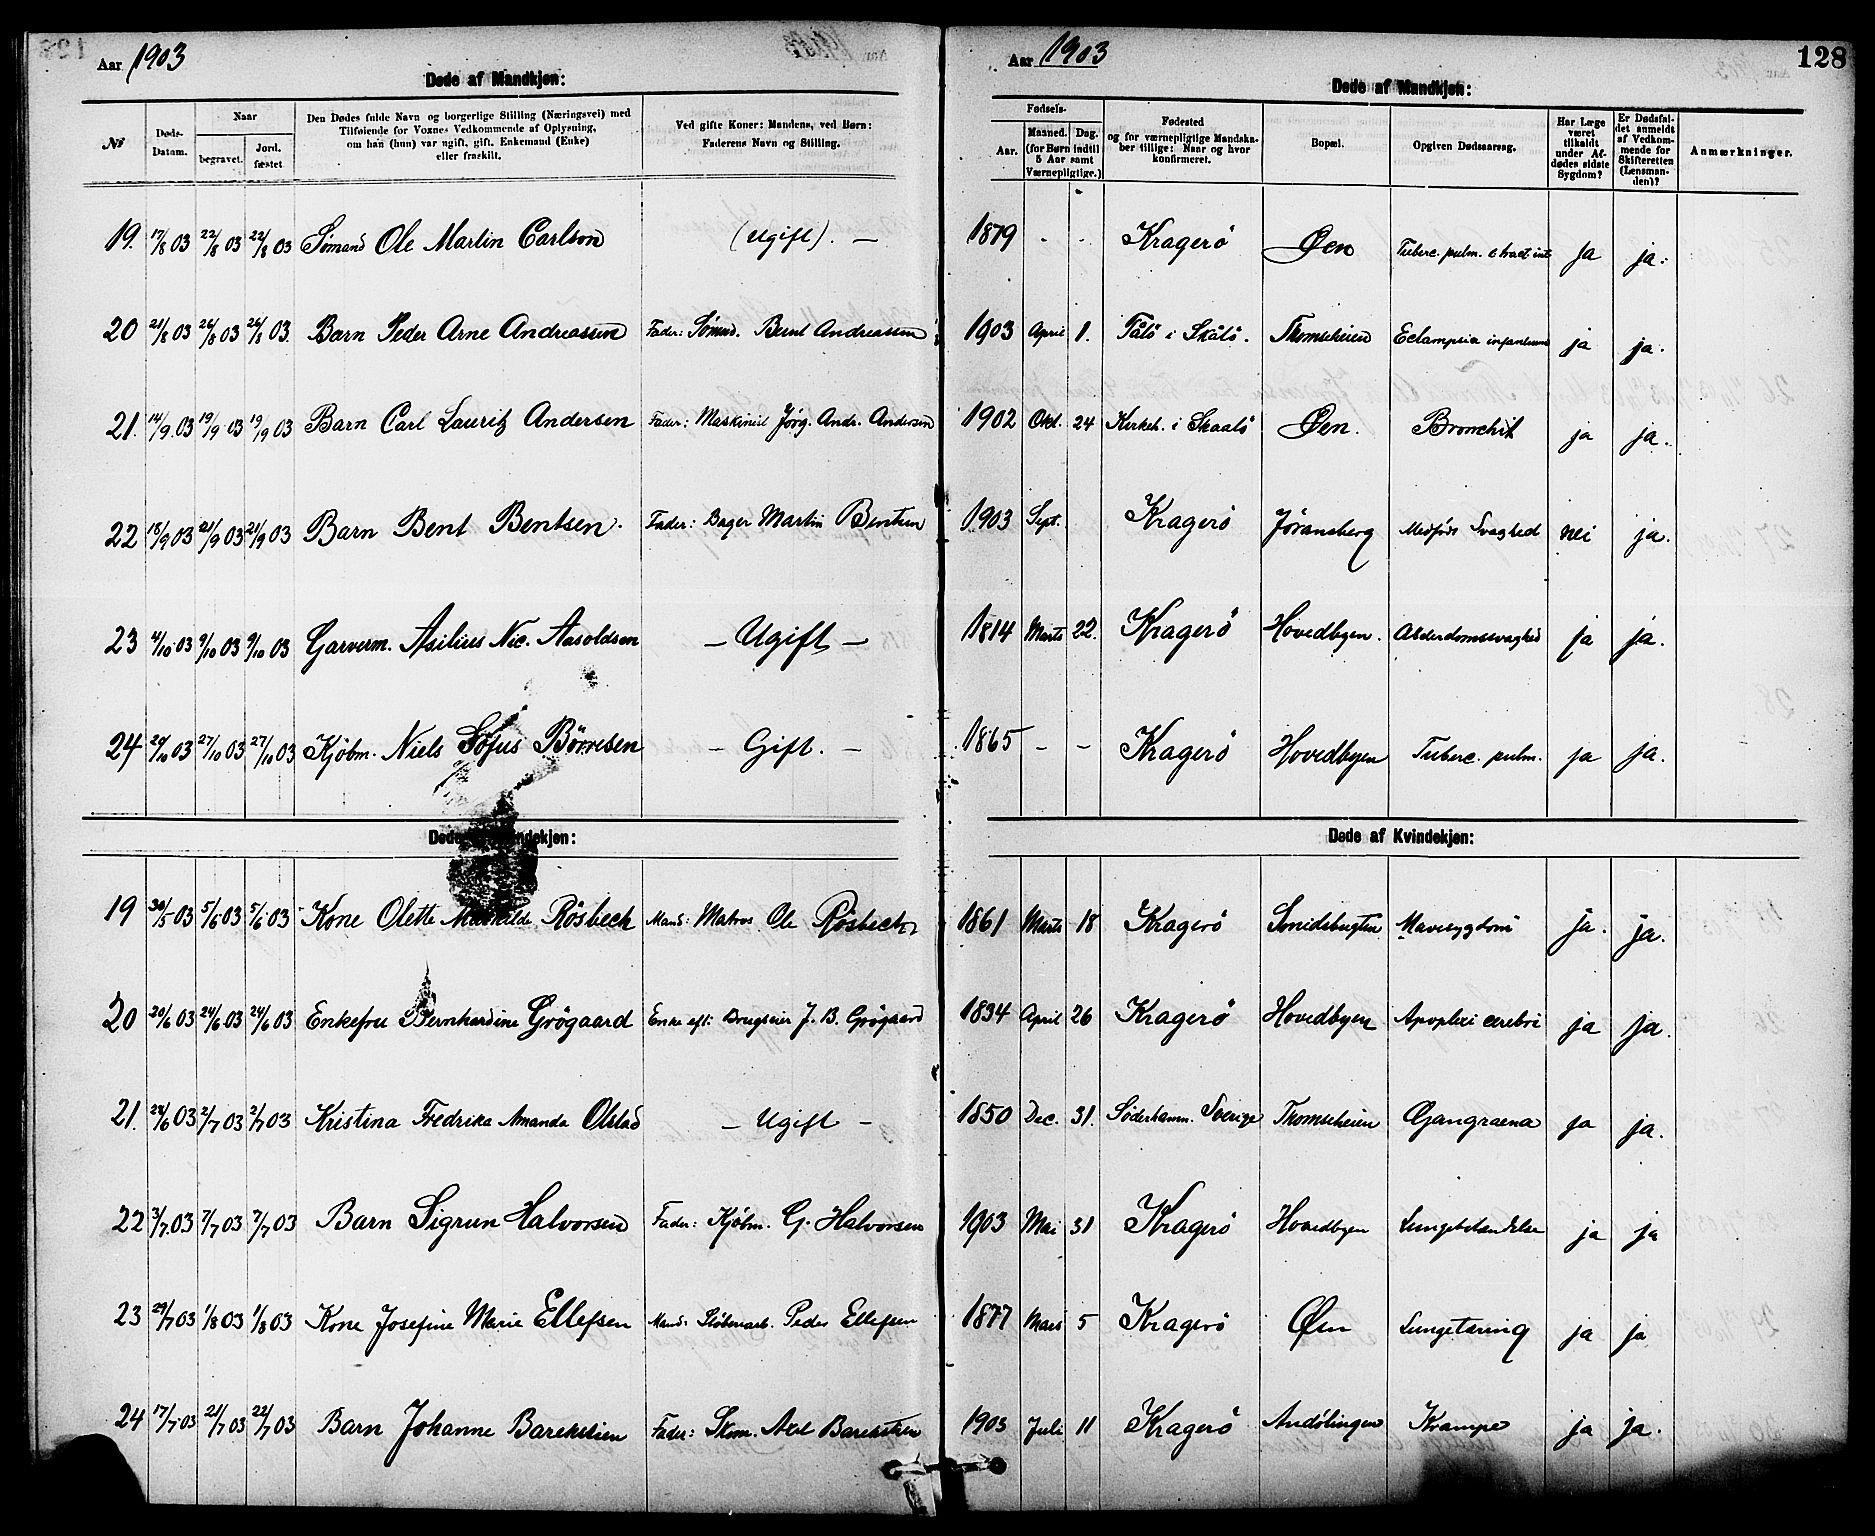 Aar 1903
Døde af Mandkjøn:
No
Døds-Datum.
Naar
begravet.
Jord-fæstet
Den Dødes fulde Navn og borgerlige Stilling (Næringsvei) med
Tilføiende for Voxnes Vedkommende af Oplysning,
om han (hun) var ugift, gift, Enkemand (Enke)
eller fraskilt.
Ved gifte Koner: Mandens, ved Børn:
Faderens Navn og Stilling.
19. 17/8 03 22/8 03 22/8 03 Sømand Ole Martin Carlson (Ugift). —
20 21/8 03 26/8 03 26/8 03. Barn Peder Arne Andreassen Fader: Sømd. Bernt Andreassen
21. 14/9 03 19/9 03 19/9 03 Barn Carl Lauritz Andersen Fader: Maskinist Jørg. Andr. Andersen
22 18/9 03 21/9 03 21/9 03 Barn Bent Bentsen. Fader: Bager Martin Bentsen
23 4/10 03 9/10 03 9/10 03 Garverm. Asilius Nic. Aasoldsen — Ugift —
24 20/10 03 27/10 03 27/10 03 Kjöbm. Niels Sofus Börresen — Gift. —
19 30/5 03 5/6 03 5/6 03 Kone Olette Mathilde Rösbeck Mand: Matros Ole Rösbeck
20 20/6 03 24/6 03 24/6 03 Enkefru Bernhardine Grögaard Enke eft: Brugseier J. B. Grögaard
21. 28/6 03 2/7 03 2/7 03 Kristina Fredrika Amanda Olstad — Ugift —
22 3/7 03 7/7 03 7/7 03 Barn Sigrun Halvorsen Fader: Kjöbm. G. Halvorsen
23 29/7 03 1/8 03 1/8 03 Kone Josefine Marie Ellefsen Mand: Peder Ellefsen
24 17/7 03 21/7 03 22/7 03 Barn Johanne Fader: Skom. Axel
Aar 1903
128
Døde af Mandkjøn:
Fødsels-
Aar.
Maaned. Dag.
(for Børn indtil
5 Aar samt
Værnepligtige.)
Fødested
og for værnepligtige Mandska-
ber tillige: Naar og hvor
konfirmeret.
Bopæl.
Opgiven Dødsaarsag.
Har Læge
været
tilkaldt
under Af-
dødes sidste
Sygdom?
Er Dødsfal-
det anmeldt
af Vedkom-
mende for
Skifteretten
(Lensman-
den)?
Anmærkninger.
1879 - - Kragerö Øen Tuberc. pulm. & tract int Ja ja.
1903 April 1. Tåtö i Skåtö. Thomseheien Eclampsia infantum ja ja.
1902 Okt. 24 Kirkeh. i Skaatö Øen. Bronchit ja ja.
1903 Sept. Kragerö Jøransberg Medföds Svaghed nei ja.
1814 Marts 22. Kragerö Hovedbyen. Alderdomssvaghed ja ja.
1865 - - Kragerö Hovedbyen Tuberc. pulm. ja ja.
Døde af Kvindekjøn:
1861 Marts 18 Kragerö Smidsbugten Mavesygdom ja. ja.
1834 April 26 Kragerö Hovedbyen Apoplexi cerebri ja ja.
1850 Dec. 31. Söderhamn. Sverige Thomseheien Gangraena ja ja.
1903 Mai 31 Kragerö Hovedbyen Lungebetændelse ja ja
1877 Mars 5 Kragerö Øen Lungetæring ja ja
1903 Juli 11 Kragerö Andölingen Krampe ja ja.